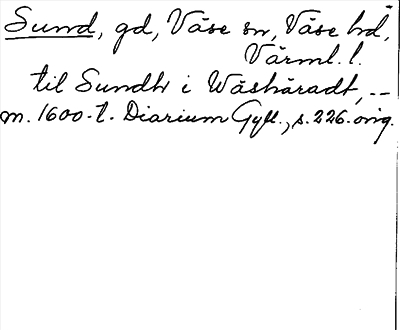 Sund, gd, Väse sn, Väse hd,
Värml. l.
til Sundh i Wäshäradt, --
m. 1600-t. Diarium Gyll., s. 226. orig.